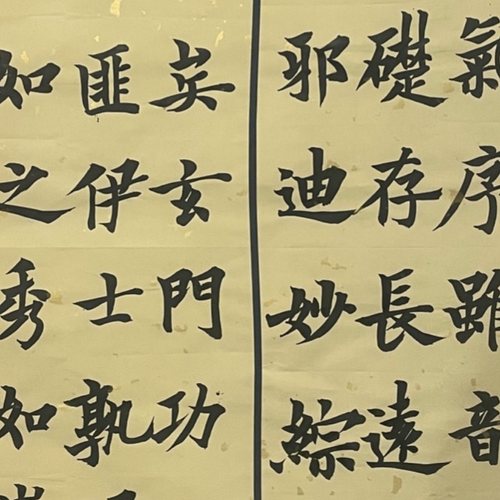 氣序雖音
礎存長遠
耶迪妙綜
矣玄門功
匪伊士孰
如之秀如